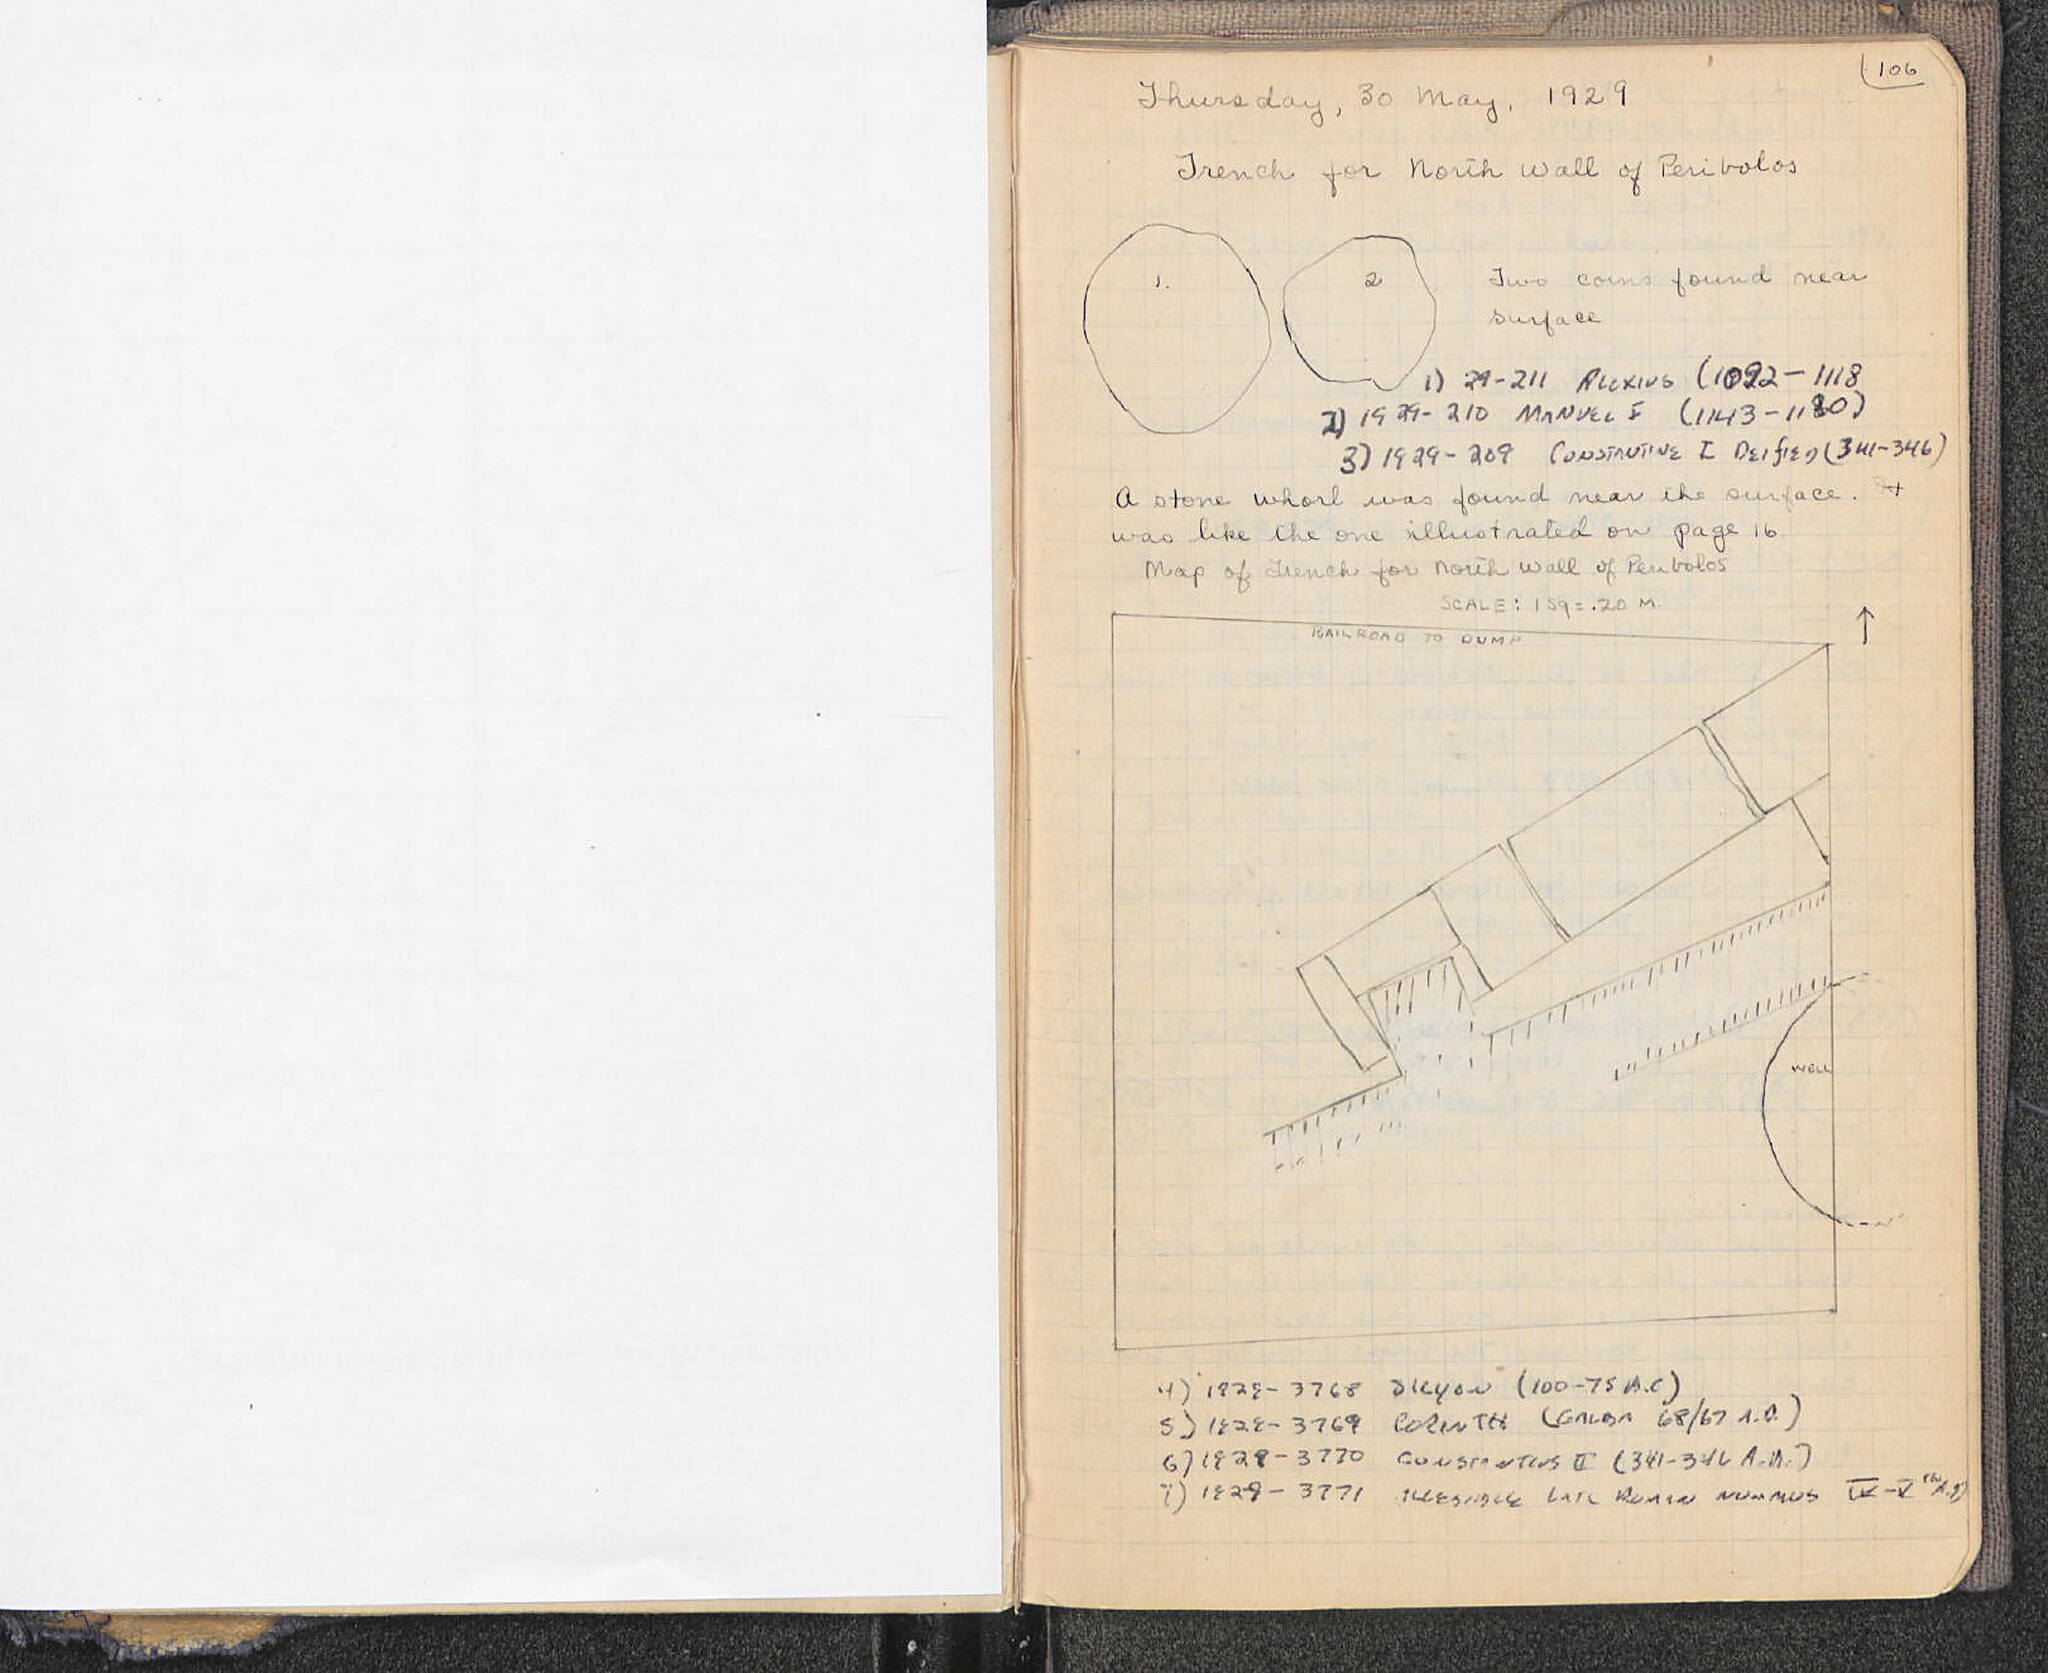 106
Thursday, 30 May, 1929
Trench for North Wall of Peribolos
1.
2
Two coins found near
surface
1) 29-211 Alexius (1092-1118
2) 1929-210 Manuel I (1143-1180)
3) 1929-209 Constantine I Deified (341-346)
A stone whorl was found near the surface. It
was like the one illustrated on page 16
Map of Trench for North Wall of Peribolos
SCALE: 1 sq = .20 M.
RAILROAD TO DUMP
WELL
4) 1929-3768 Sicyon (100-75 B.C)
5) 1929-3769 Corinth (Galba 68/67 A.D.)
6) 1929-3770 Constantius II (341-346 A.D.)
7) 1929-3771 illegible late Roman nummus IV-V th A.D